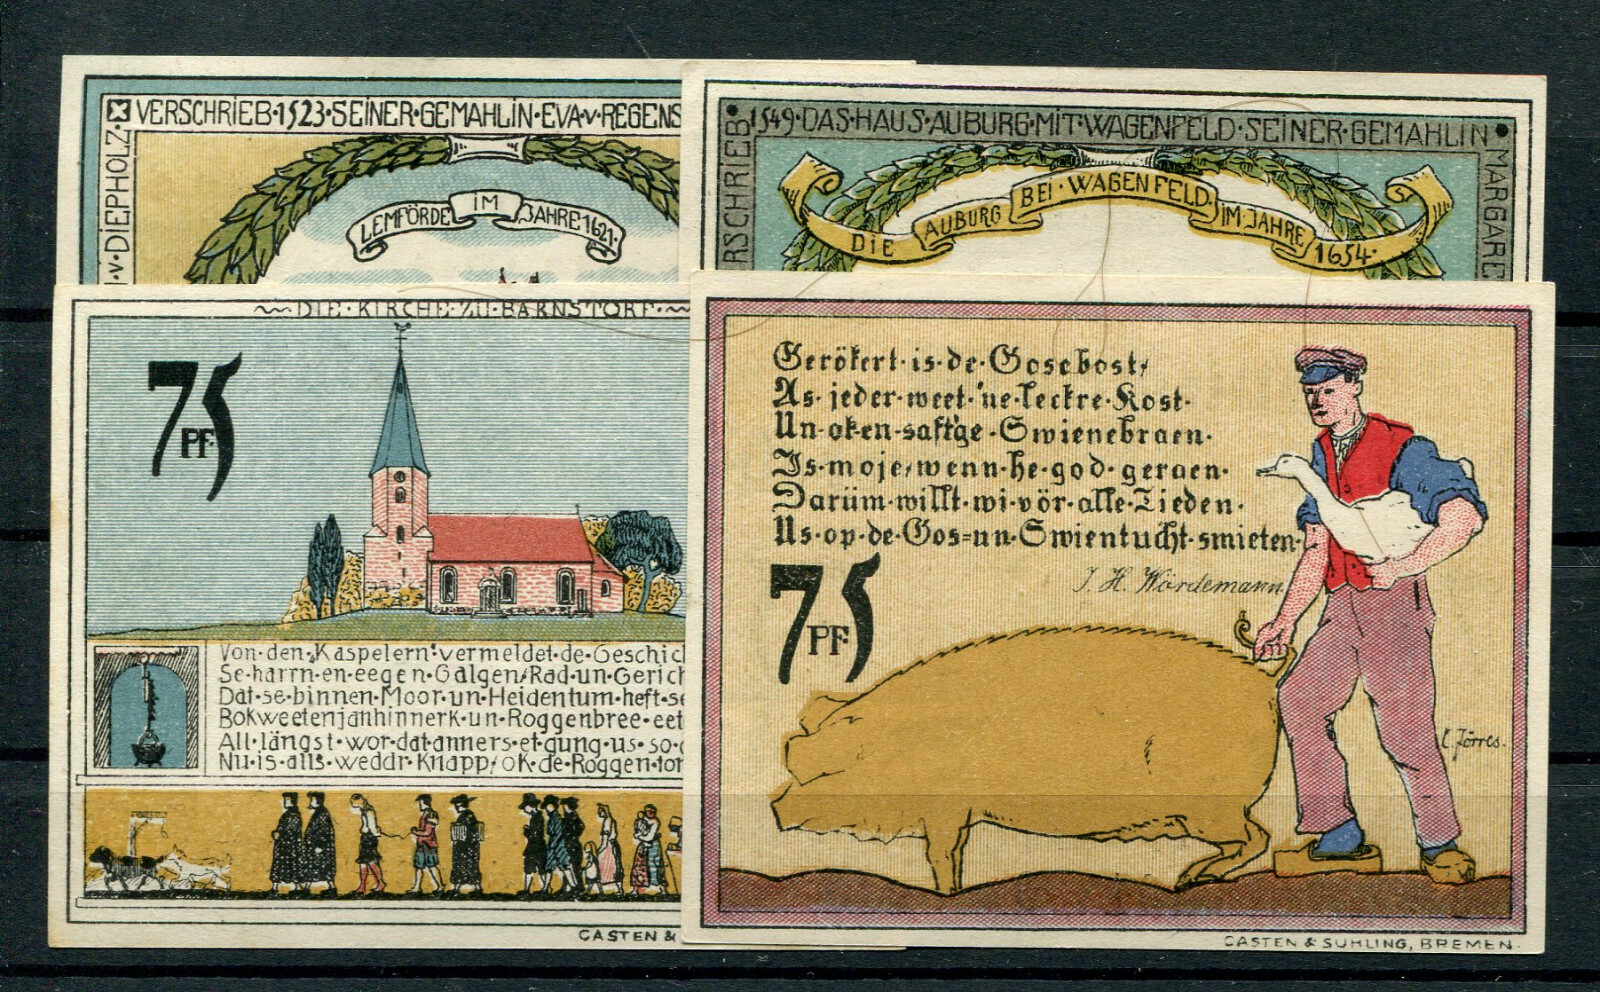 VERSCHRIEB·1523·SEINER·GEMAHLIN·EVA·v·REGENS
·v·DIEPHOLZ·
LEMFÖRDE IM JAHRE 1621·
·1549·DAS·HAUS·AUBURG·MIT·WAGENFELD·SEINER·GEMAHLIN·
RSCHRIEB
MARGARE
DIE AUBURG BEI·WAGENFELD IM JAHRE 1654·
DIE·KIRCHE·ZU·BARNSTORF·
75
PF·
Von·den„Kaspelern“vermeldet·de·Geschic
Se·harrn·en·eegen·Galgen/Rad·un·Gerich
Dat·se·binnen·Moor·un·Heidentum·heft·se
Bokweetenjanhinnerk·un·Roggenbree·eet
All·längst·wor·dat·anners·et·gung·us·so·
Nu·is·alls·weddr·knapp/ok·de·Roggen·tor
CASTEN &
Gerökert·is·de·Gosebost/
As·jeder·weet·'ne·leckre·Kost·
Un·ok·en·saft'ge·Swienebraen·
Is·moje/wenn·he·god·geraen·
Darüm·willt·wi·vör·alle·Tieden·
Us·op·de·Gos=un·Swientucht·smieten·
J. H. Wördemann
75
PF·
C. Jörres.
CASTEN & SUHLING, BREMEN·